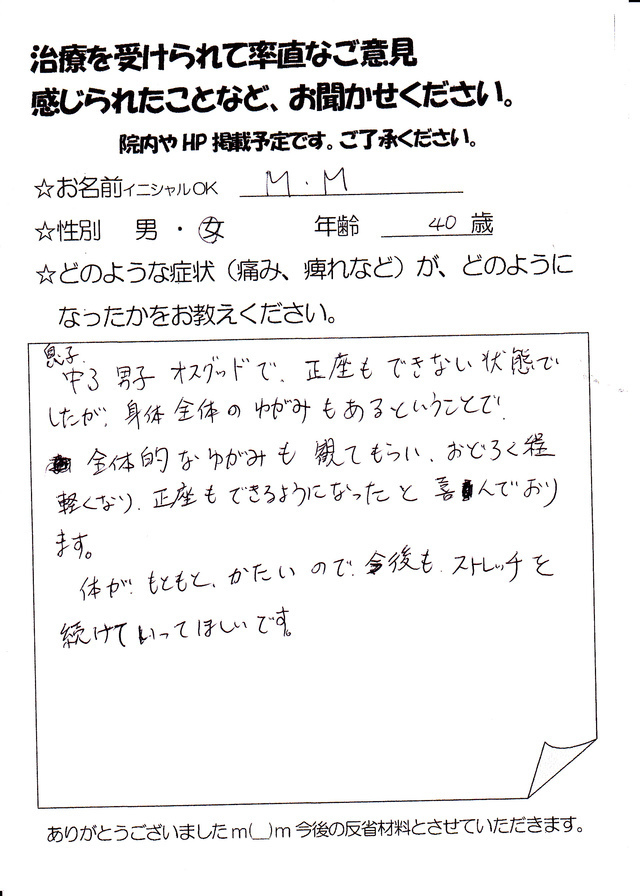 治療を受けられて率直なご意見
感じられたことなど、お聞かせください。
院内やHP掲載予定です。ご了承ください。
☆お名前イニシャルOK M.M
☆性別 男・女 年齢 40歳
☆どのような症状（痛み、痺れなど）が、どのように
なったかをお教えください。
息子.
中3 男子 オスグッドで、正座もできない状態で
したが、身体全体のゆがみもあるということで、
全体的なゆがみも観てもらい、おどろく程
軽くなり、正座もできるようになったと喜んでおり
ます。
体が、もともと、かたいので、今後も、ストレッチを
続けていってほしいです。
ありがとうございましたm(__)m今後の反省材料とさせていただきます。